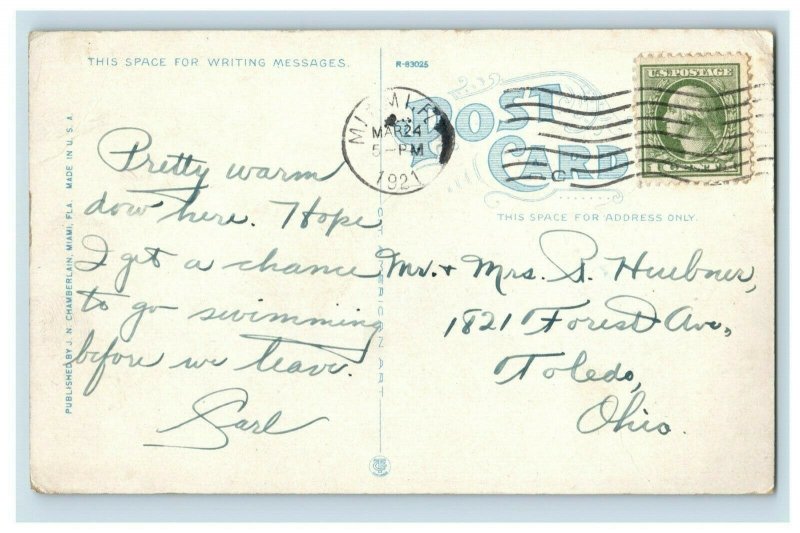 THIS SPACE FOR WRITING MESSAGES.
R-83025
POST
CARD
THIS SPACE FOR ADDRESS ONLY.
U.S. POSTAGE
MAR 24
5-PM
1921
PUBLISHED BY J. N. CHAMBERLAIN, MIAMI, FLA. MADE IN U.S.A.
Pretty warm
dow here. Hope
I get a chance
to go swimming
before we leave.
Mr. + Mrs. S. Huebner,
1821 Forest Ave,
Toledo,
Ohio.